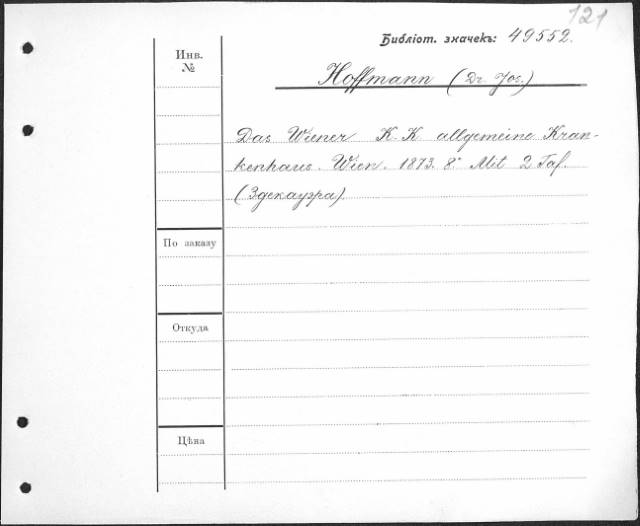 121
Библіот. значекъ: 49552.
Инв.
№
Hoffmann (Dr. Jos.)
Das Wiener K. K allgemeine Kran-
kenhaus. Wien. 1873. 8° Mit 2 Taf.
(Здекауэра).
По заказу
Откуда
Цѣна